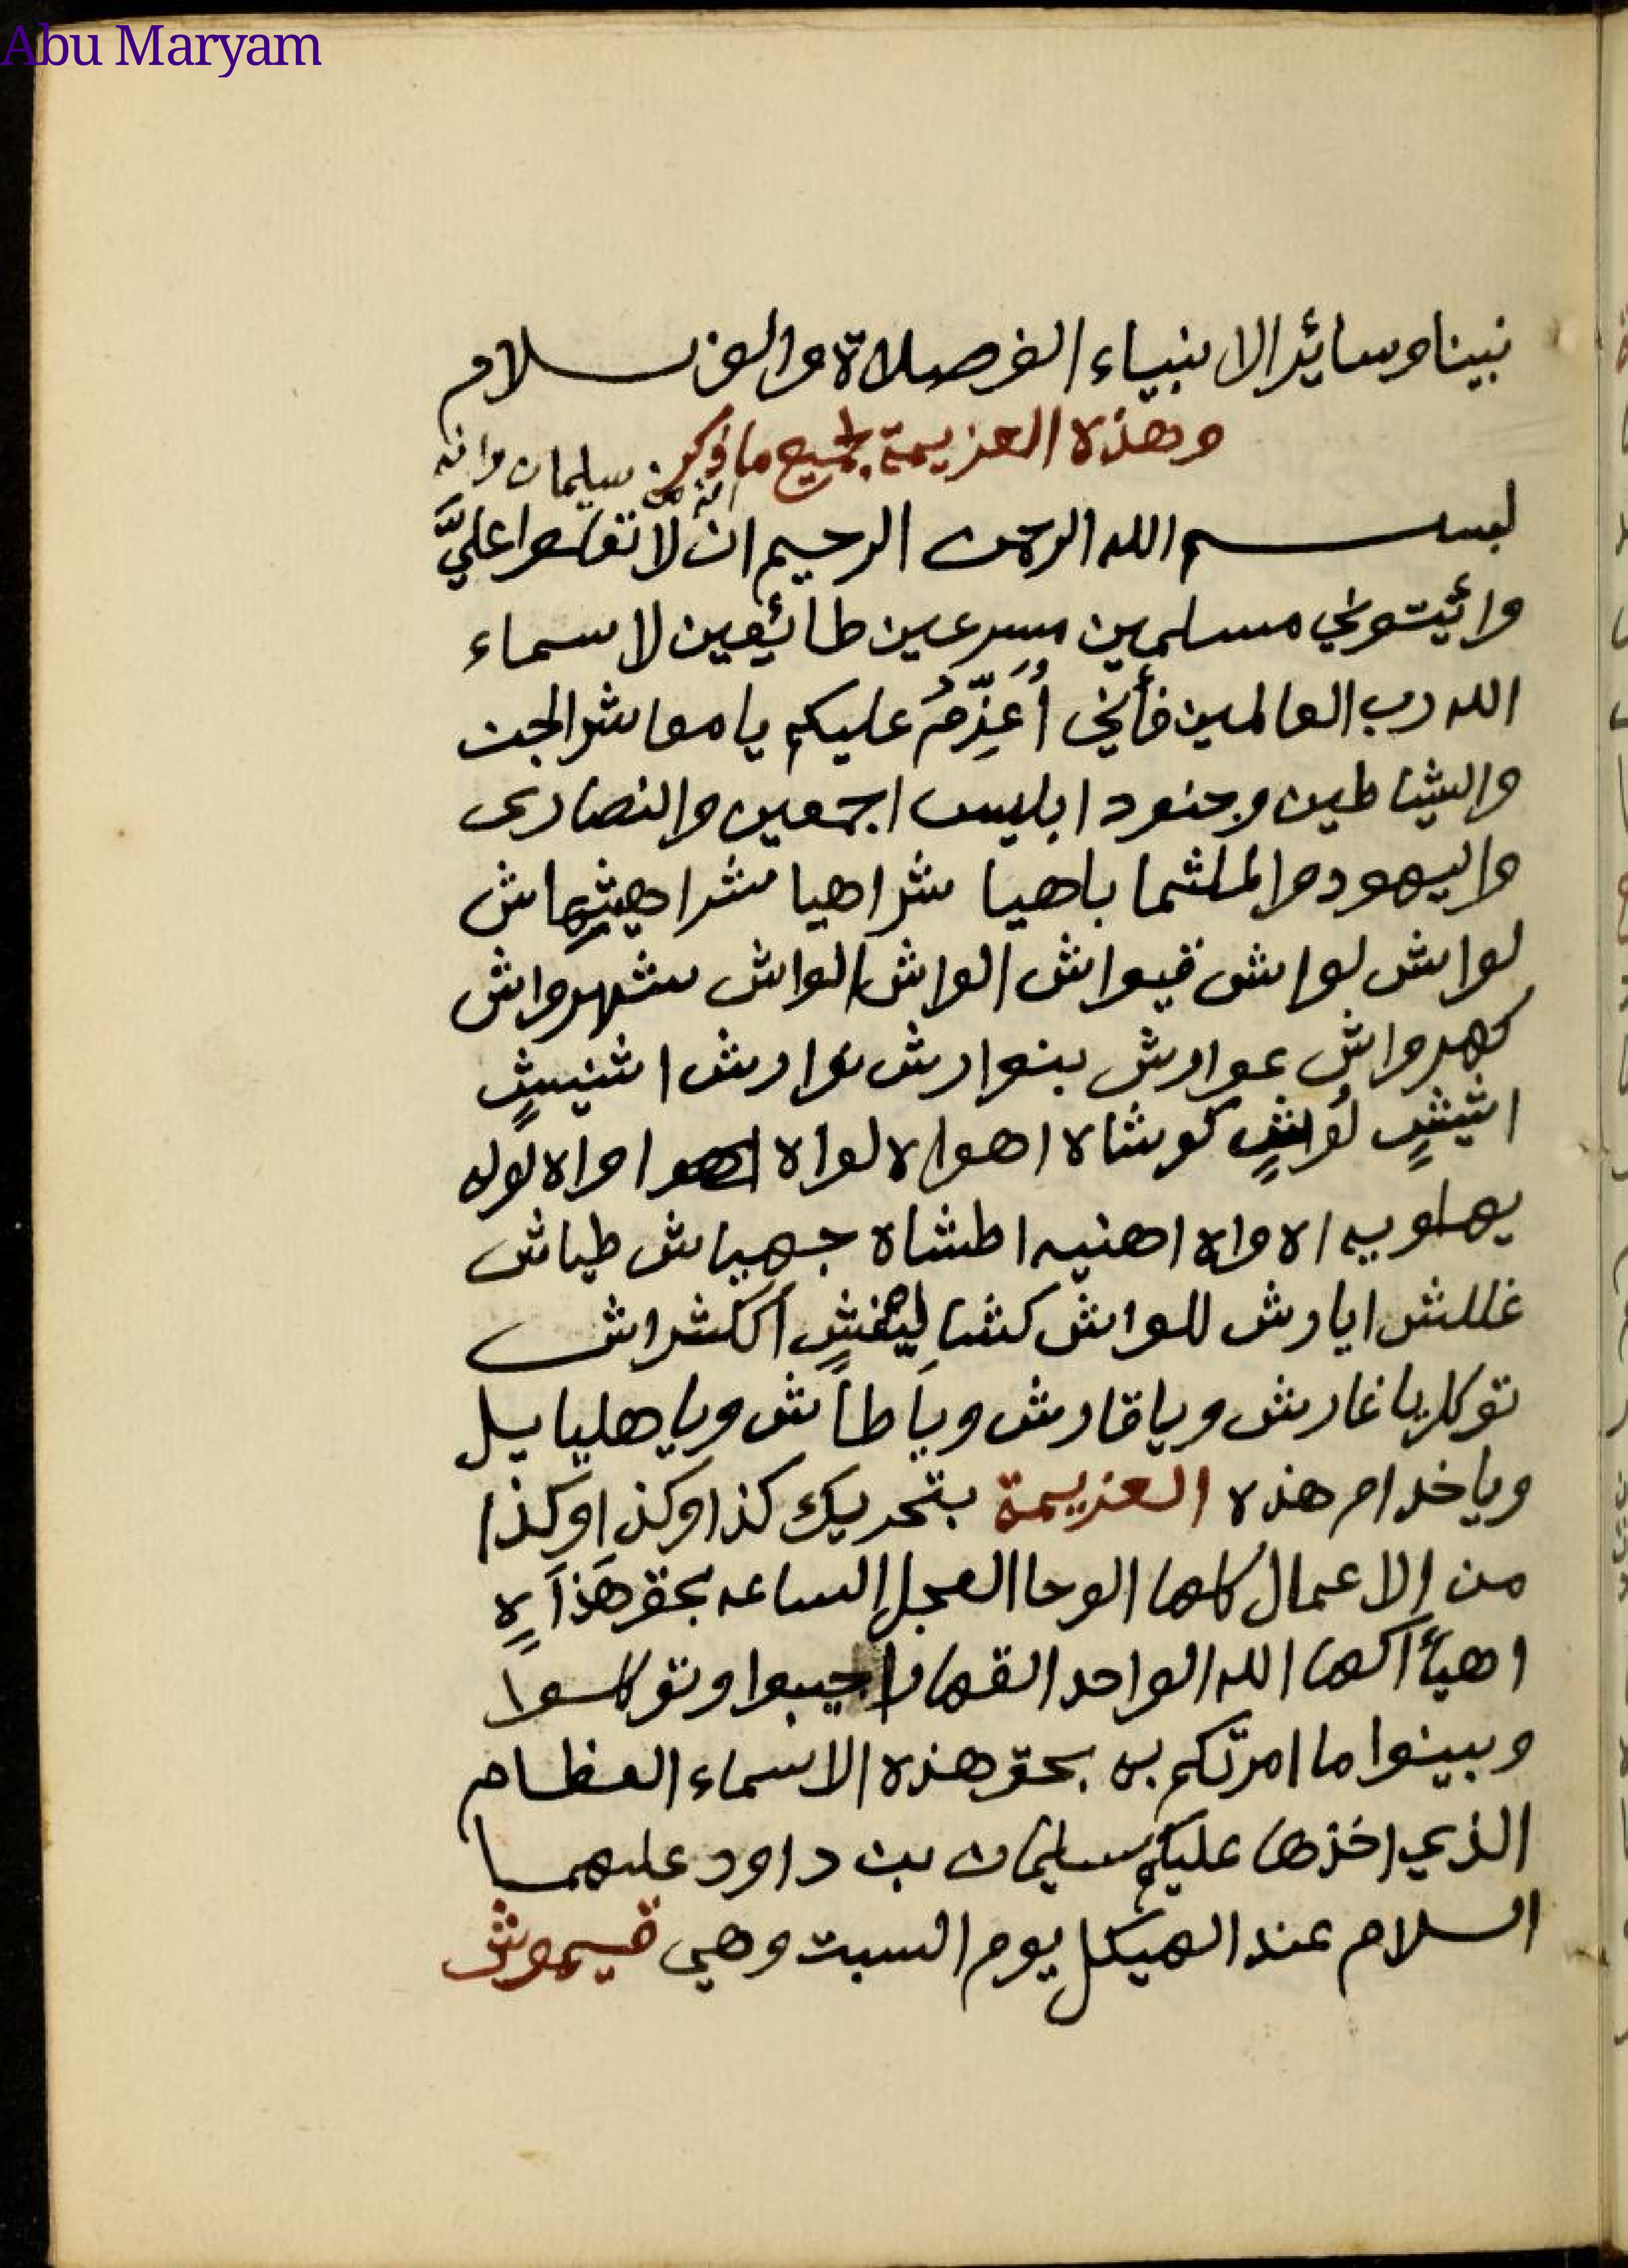 Abu Maryam
نبينا وسائر الانبياء الف صلاة والف سلام
وهذه العزيمة لجميع ما ذكر
انه من سليمان وانه
بسم الله الرحمن الرحيم ان لا تعلوا عليَّ
وائيتوني مسلمين مسرعين طائيعين لاسماء
الله رب العالمين فأني أُعَزِّمُ عليكم يا معاشر الجن
والشياطين وجنود ابليس اجمعين والنصارى
واليهود باهيا شراهيا
لواش لواش قيواش الواش الواش شهرواش
كهرواش عوارش بنوارش نوارش اشنيشٍ
اشيشٍ لُواشٍ كوشاه اهواه لواه اواه لوله
يهلويه اه واه اهنيه اطشاه جهياش طياش
غللش ايارش للواش اككشراش
توكل يا غارش ويا قارش ويا طاش ويا هليايل
ويا خدام هذه العزيمة بتحريك كذا وكذا وكذا
من الاعمال كلها الوحا العجل الساعه بحق هذا
اهيأ الله الواحد القهار اجيبوا وتوكلوا
وبينوا ما امرتكم به بحق هذه الاسماء العظام
الذي اخذها عليكم سليمان بن داود عليهما
السلام عند الهيكل يوم السبت وهي قيموش